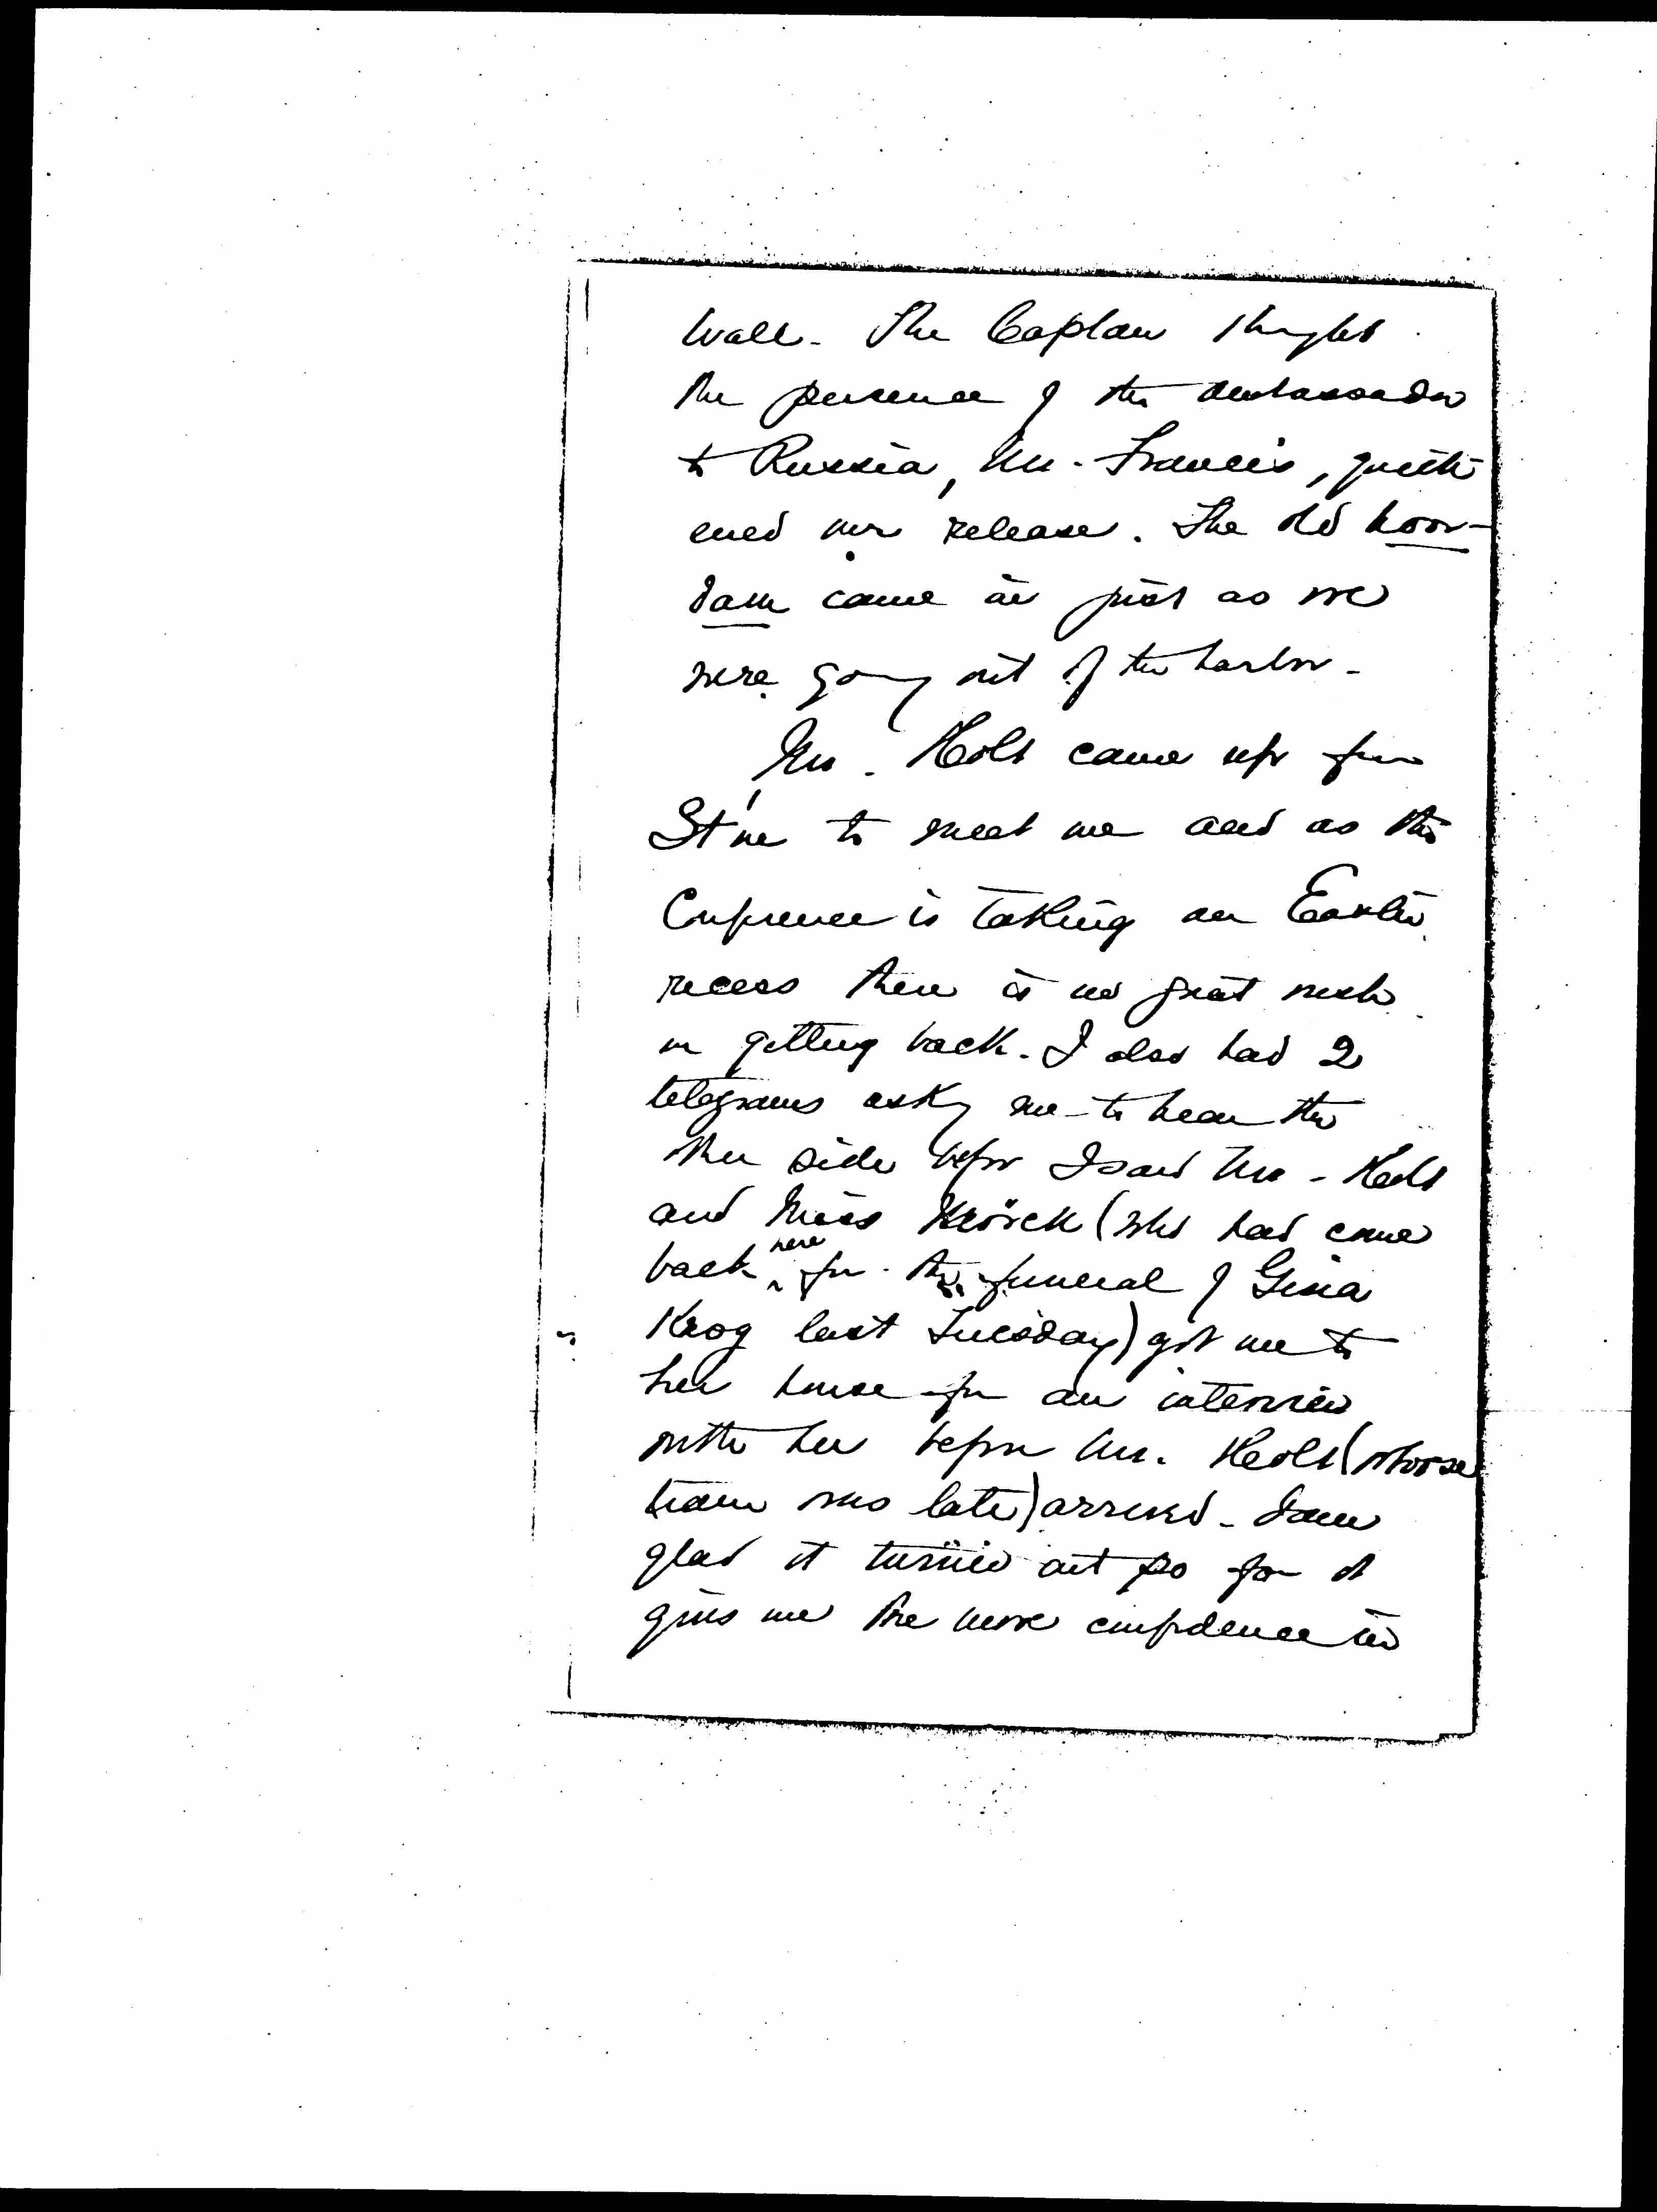 Wall. The Captain thought
the presence of the Ambassador
to Russia, Mr. Francis, quick
ened our release. The old Noor-
dam came in just as we
were going out of the harbor.
Mr. Holt came up from
St'm to meet me and as the
Conference is taking an Easter
recess there is no great rush
in getting back. I also had 2
telegrams asking me to hear the
other side before I saw Mr. Holt
and Miss (who had come
back here for the funeral of Gina
Krog last Tuesday) got me to
her house for an interview
with her before Mr. Holt (whose
train was late) arrived. I am
glad it turned out so for it
gives me the more confidence in